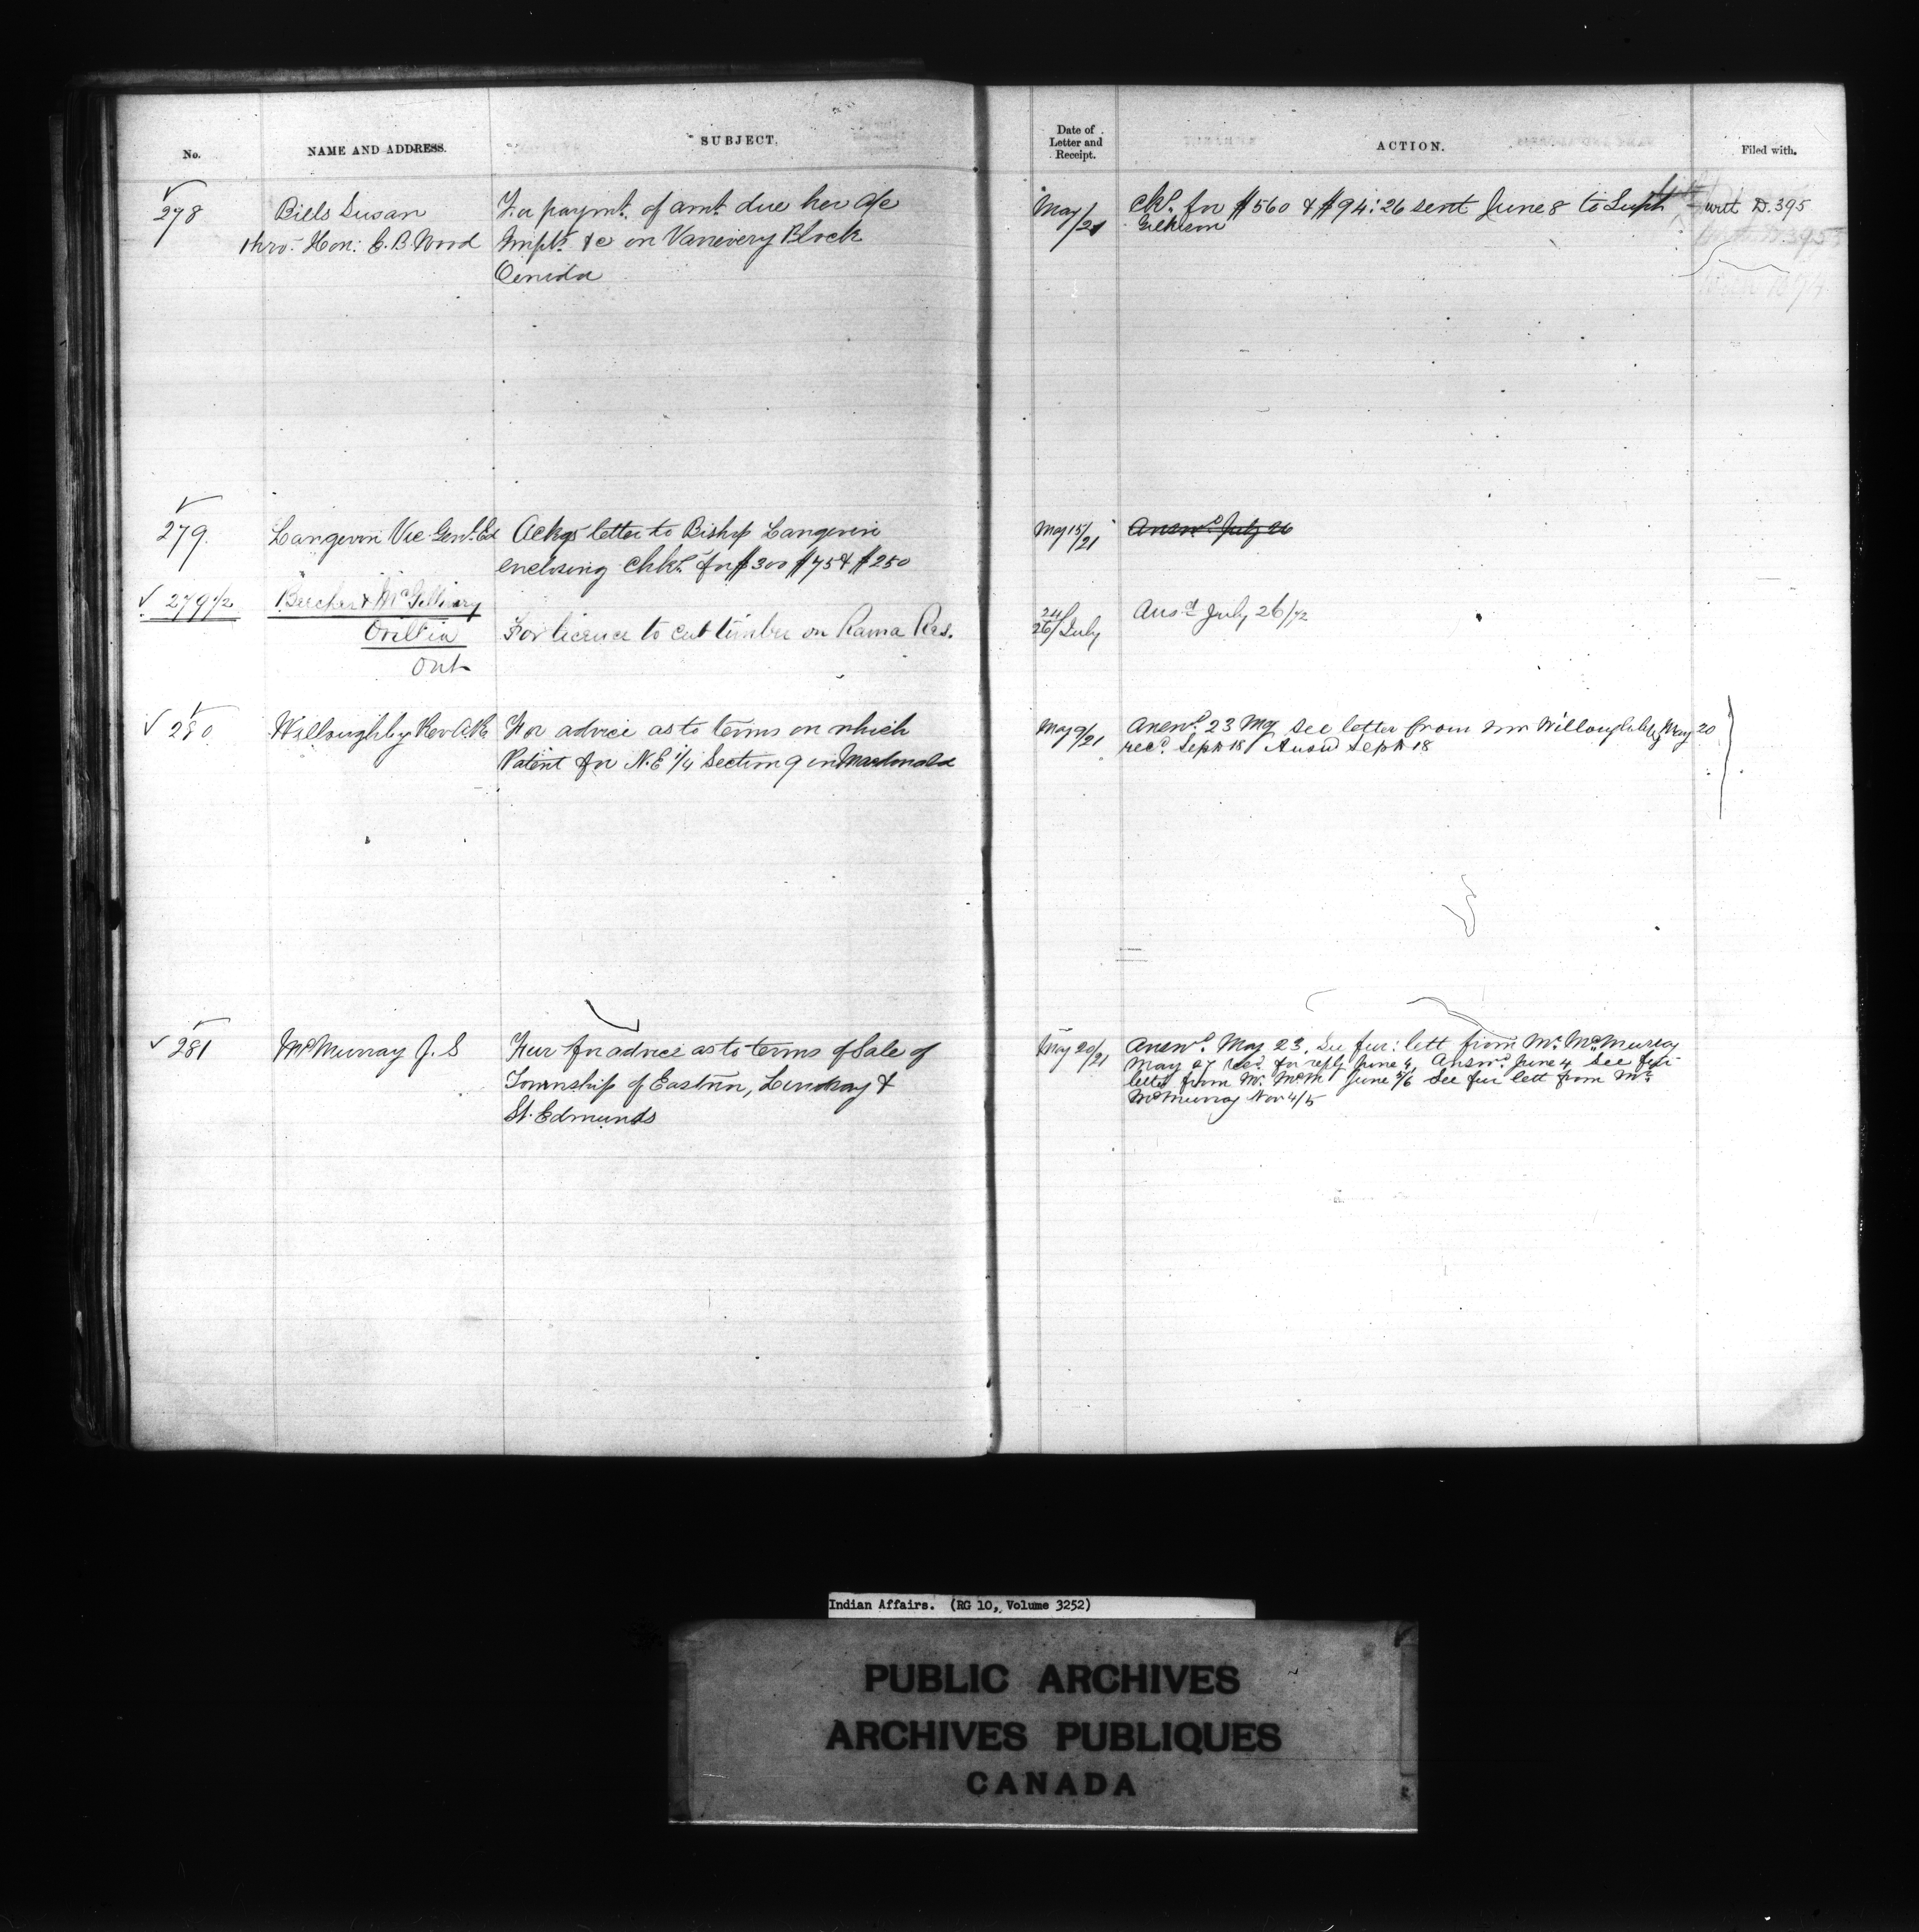 No.
NAME AND ADDRESS.
SUBJECT.
278
Bills Susan
thro: Hon: E. B. Wood
For paymt. of amt. due her a/c
Impts. &c on Vanevery Block
Oenida
279.
Langevin Vic Genl. Ed
Ackgs letter to Bishop Langevin
enclosing Chks. for $300 $75 & $250
279 1/2
Beecher & McGillivary
Orillia
Ont
For licence to cut timber on Rama Res.
280
Willoughby Rev
For advice as to terms on which
Patent for N.E 1/4 Section 9 in Macdonald
281
McMurray J. S
Fur for advice as to terms of Sale of
Township of Eastnor, Lindsay &
St. Edmunds
Date of
Letter and
Receipt.
ACTION.
Filed with.
May/21
Chk. for $560 & $94:26 sent June 8 to Supt
Gilkison
with D.395
May 15/21
Answd. July 26
24/26/July
Ansd July 26/72
May 9/21
Answd. 23 May See letter from Mr Willoughby May 20
recd. Sept 18 Answd Sept 18
May 20/21
Answd. May 23. See fur: lett from Mr. McMurray
May 27 recd. for reply June 4. Answd. June 4 See fur
letter from Mr. McM June 5/6 See fur lett from Mr.
McMurray Nov 4/5
Indian Affairs. (RG 10, Volume 3252)
PUBLIC ARCHIVES
ARCHIVES PUBLIQUES
CANADA